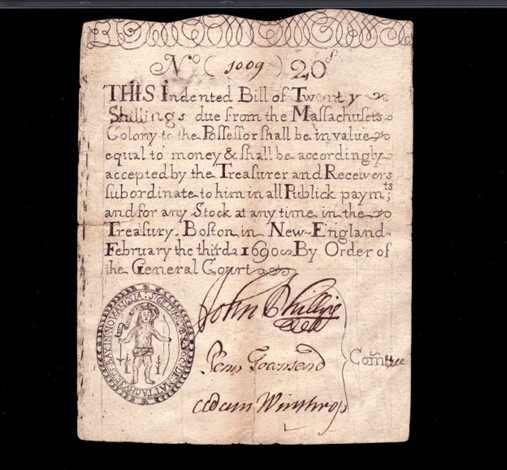 No ( 1009 ) 20s
THIS Indented Bill of Twenty
Shillings due from the Massachusets
Colony to the Possessor shall be in value
equal to money & shall be accordingly
accepted by the Treasurer and Receivers
subordinate to him in all Publick paymts
and for any Stock at any time in the
Treasury. Boston in New-England
February the third 1690 By Order of
the General Court
John Phillips
Penn Townsend
Adam Winthrop
Comttee